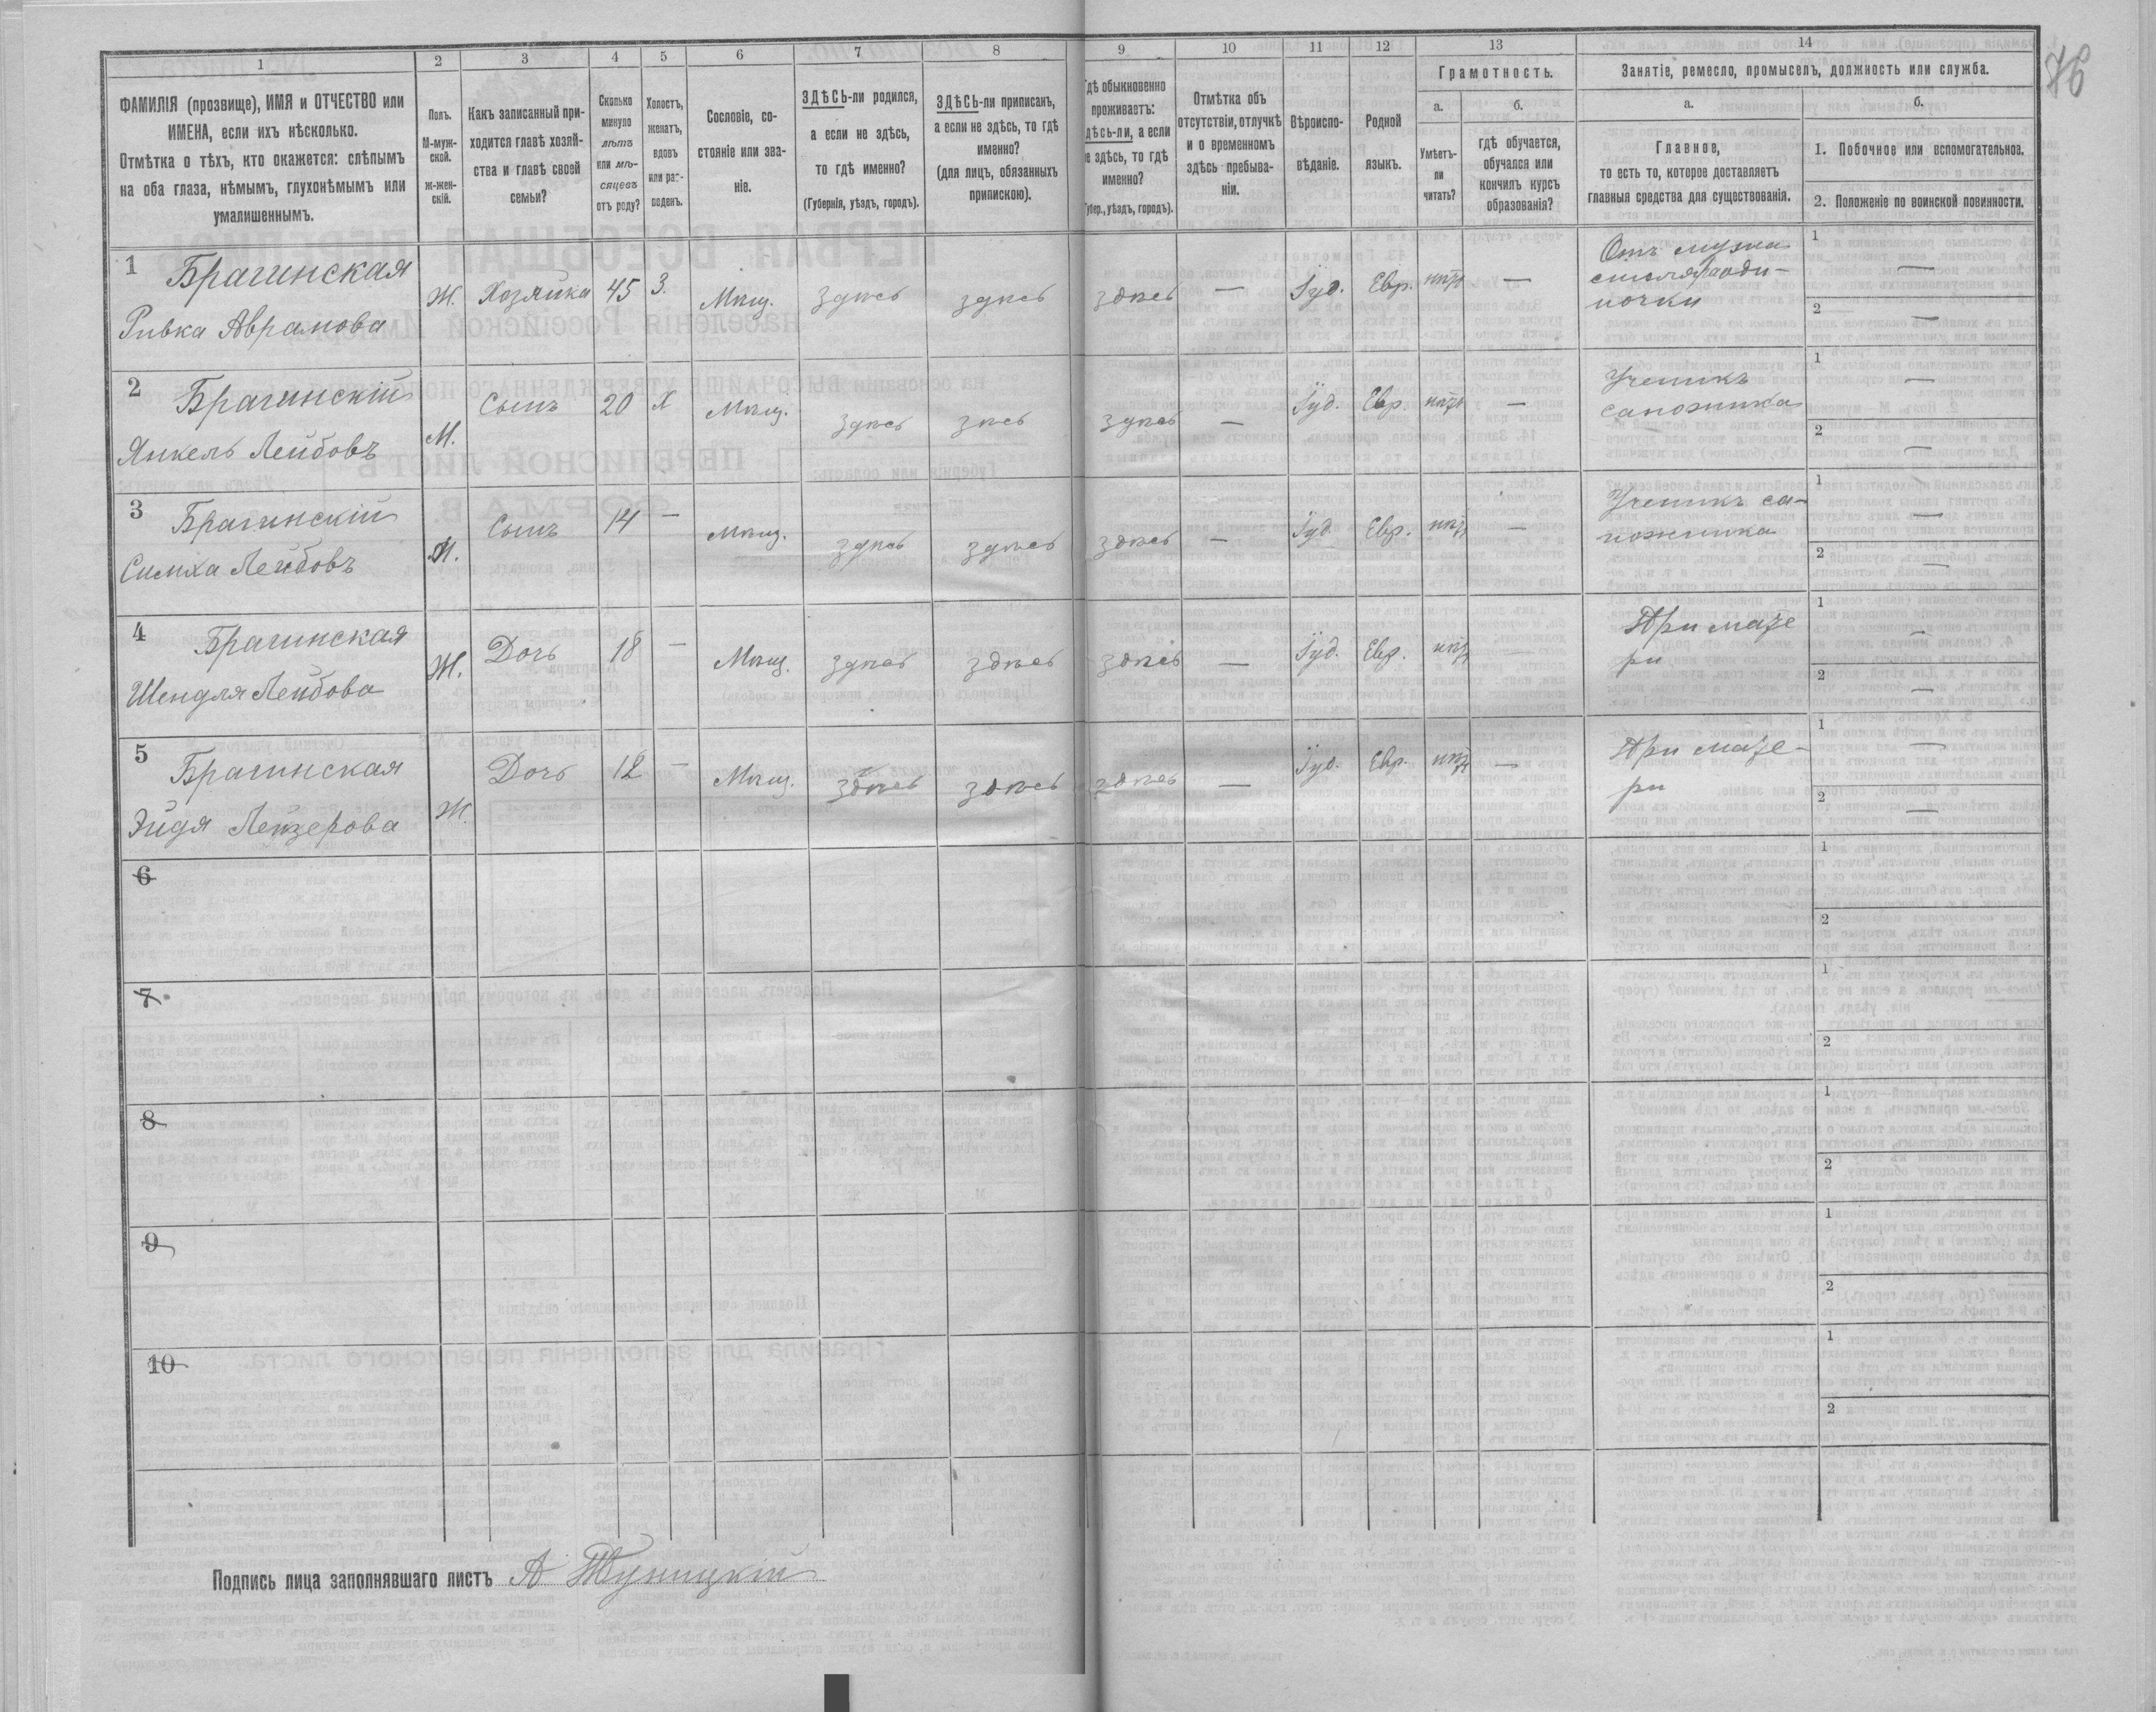 76
1 2 3 4 5 6 7 8 9 10 11 12 13 14
ФАМИЛІЯ (прозвище), ИМЯ и ОТЧЕСТВО или
ИМЕНА, если ихъ нѣсколько.
Отмѣтка о тѣхъ, кто окажется: слѣпымъ
на оба глаза, нѣмымъ, глухонѣмымъ или
умалишеннымъ.
Полъ.
М-муж-
ской.
ж-жен-
скій.
Какъ записанный при-
ходится главѣ хозяй-
ства и главѣ своей
семьи?
Сколько
минуло
лѣтъ
или мѣ-
сяцевъ
отъ роду?
Холостъ,
женатъ,
вдовъ
или раз-
веденъ.
Сословіе, со-
стояніе или зва-
ніе.
ЗДѢСЬ-ли родился,
а если не здѣсь,
то гдѣ именно?
(Губернія, уѣздъ, городъ).
ЗДѢСЬ-ли приписанъ,
а если не здѣсь, то гдѣ
именно?
(для лицъ, обязанныхъ
припискою).
гдѣ обыкновенно
проживаетъ:
здѣсь-ли, а если
не здѣсь, то гдѣ
именно?
(Губер., уѣздъ, городъ).
Отмѣтка объ
отсутствіи, отлучкѣ
и о временномъ
здѣсь пребыва-
ніи.
Вѣроиспо-
вѣданіе.
Родной
языкъ.
Грамотность.
а. б.
Умѣетъ-
ли
читать?
гдѣ обучается,
обучался или
кончилъ курсъ
образованія?
Занятіе, ремесло, промыселъ, должность или служба.
а. б.
Главное,
то есть то, которое доставляетъ
главныя средства для существованія.
1. Побочное или вспомогательное.
2. Положеніе по воинской повинности.
1 Брагинская
Ривка Аврамова
Ж. Хозяйка 45 З. Мѣщ. здѣсь здѣсь здѣсь — Іуд. Евр. нѣтъ —
Отъ мужа
1 —
2 —
2 Брагинскій
Янкель Лейбовъ
М. Сынъ 20 Х Мѣщ. здѣсь здѣсь — Іуд. Евр. нѣтъ —
Ученикъ
сапожника
1 —
2 —
3 Брагинскій
Симха Лейбовъ
М. Сынъ 14 — Мѣщ. здѣсь здѣсь здѣсь — Іуд. Евр. нѣтъ —
Ученикъ са-
пожника
1 —
2 —
4 Брагинская
Шендля Лейбова
Ж. Дочь 18 — Мѣщ. здѣсь здѣсь здѣсь — Іуд. Евр. нѣтъ —
При мате
ри
1 —
2 —
5 Брагинская
Эйдя Лейзерова
Ж. Дочь 12 — Мѣщ. здѣсь здѣсь здѣсь — Іуд. Евр. нѣтъ —
При мате-
ри
1 —
2 —
6
1
2
7
1
2
8
1
2
9
1
2
10
1
2
Подпись лица заполнявшаго листъ А